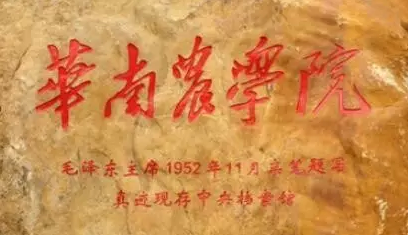 華南農學院
毛泽东主席1952年11月亲笔题写
真迹现存中央档案馆